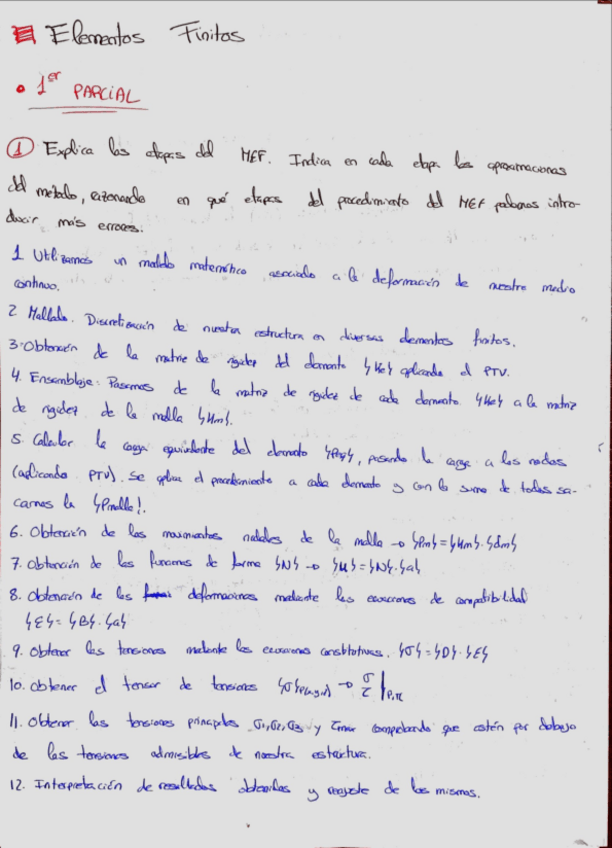 Elementos Finitos
• 1er PARCIAL
① Explica las etapas del MEF. Indica en cada etapa las aproximaciones
del metodo, razonando en qué etapas del procedimiento del MEF podemos intro-
ducir más errores.
1 Utilizamos un modelo matemático asociado a la deformación de nuestro medio
continuo.
2 Mallado. Discretización de nuestra estructura en diversos elementos finitos.
3. Obtención de la matriz de rigidez del elemento {Ke} aplicando el PTV.
4. Ensamblaje: Pasamos de la matriz de rigidez de cada elemento {Ke} a la matriz
de rigidez de la malla {Km}.
5. Calcular la carga equivalente del elemento {Peq}, pasando la carga a los nodos
(aplicando PTV). Se aplica el procedimiento a cada elemento y con la suma de todos sa-
camos la {Pmalla}.
6. Obtención de los movimientos nodales de la malla → {Pm} = {Km}·{am}
7. Obtención de las funciones de forma {N} → {u} = {N}·{a}
8. Obtención de las deformaciones mediante las ecuaciones de compatibilidad
{E} = {B}·{a}
9. Obtener las tensiones mediante las ecuaciones constitutivas. {σ} = {D}·{E}
10. Obtener el tensor de tensiones {σ}P(x,y,z) → σ τ | P,π
11. Obtener las tensiones principales σ1, σ2, σ3 y τmax comprobando que estén por debajo
de las tensiones admisibles de nuestra estructura.
12. Interpretación de resultados obtenidos y reajuste de los mismos.